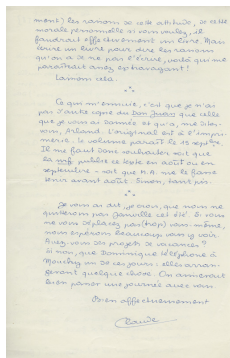 ment) les raisons de cette attitude, de cette
morale personnelle si vous voulez, il
faudrait effectivement un livre. Mais
écrire un livre pour dire les raisons
qu'on a de ne pas l'écrire, voilà qui me
paraîtrait assez extravagant !
Laissons cela.
Ce qui m'ennuie, c'est que je n'ai
pas d'autre copie du Don Juan que celle
que je vous ai donnée et qu'a, me dites-
vous, Arland. L'original est à l'impri-
merie. Le volume paraît le 15 septbre.
Il me faut donc souhaiter soit que
la nrf publie ce texte en août ou en
septembre - soit que M.A. me le fasse
tenir avant août. Sinon, tant pis.
Je vous ai dit, je crois, que nous ne
quittons pas Janville cet été. Si vous
ne vous déplacez pas (trop) vous-même,
nous espérons beaucoup vous y voir.
Avez-vous des projets de vacances ?
Si non, que Dominique téléphone à
Mouchy un de ces jours : elles arran-
geront quelque chose. On aimerait
bien passer une journée avec vous.
Bien affectueusement
Claude